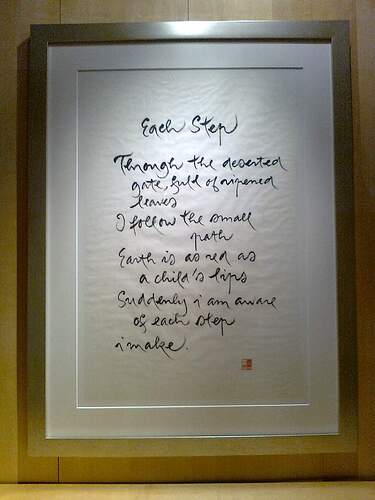 Each Step
Through the deserted
gate, full of ripened
leaves
I follow the small
path
Earth is as red as
a child's lips
Suddenly i am aware
of each step
i make.